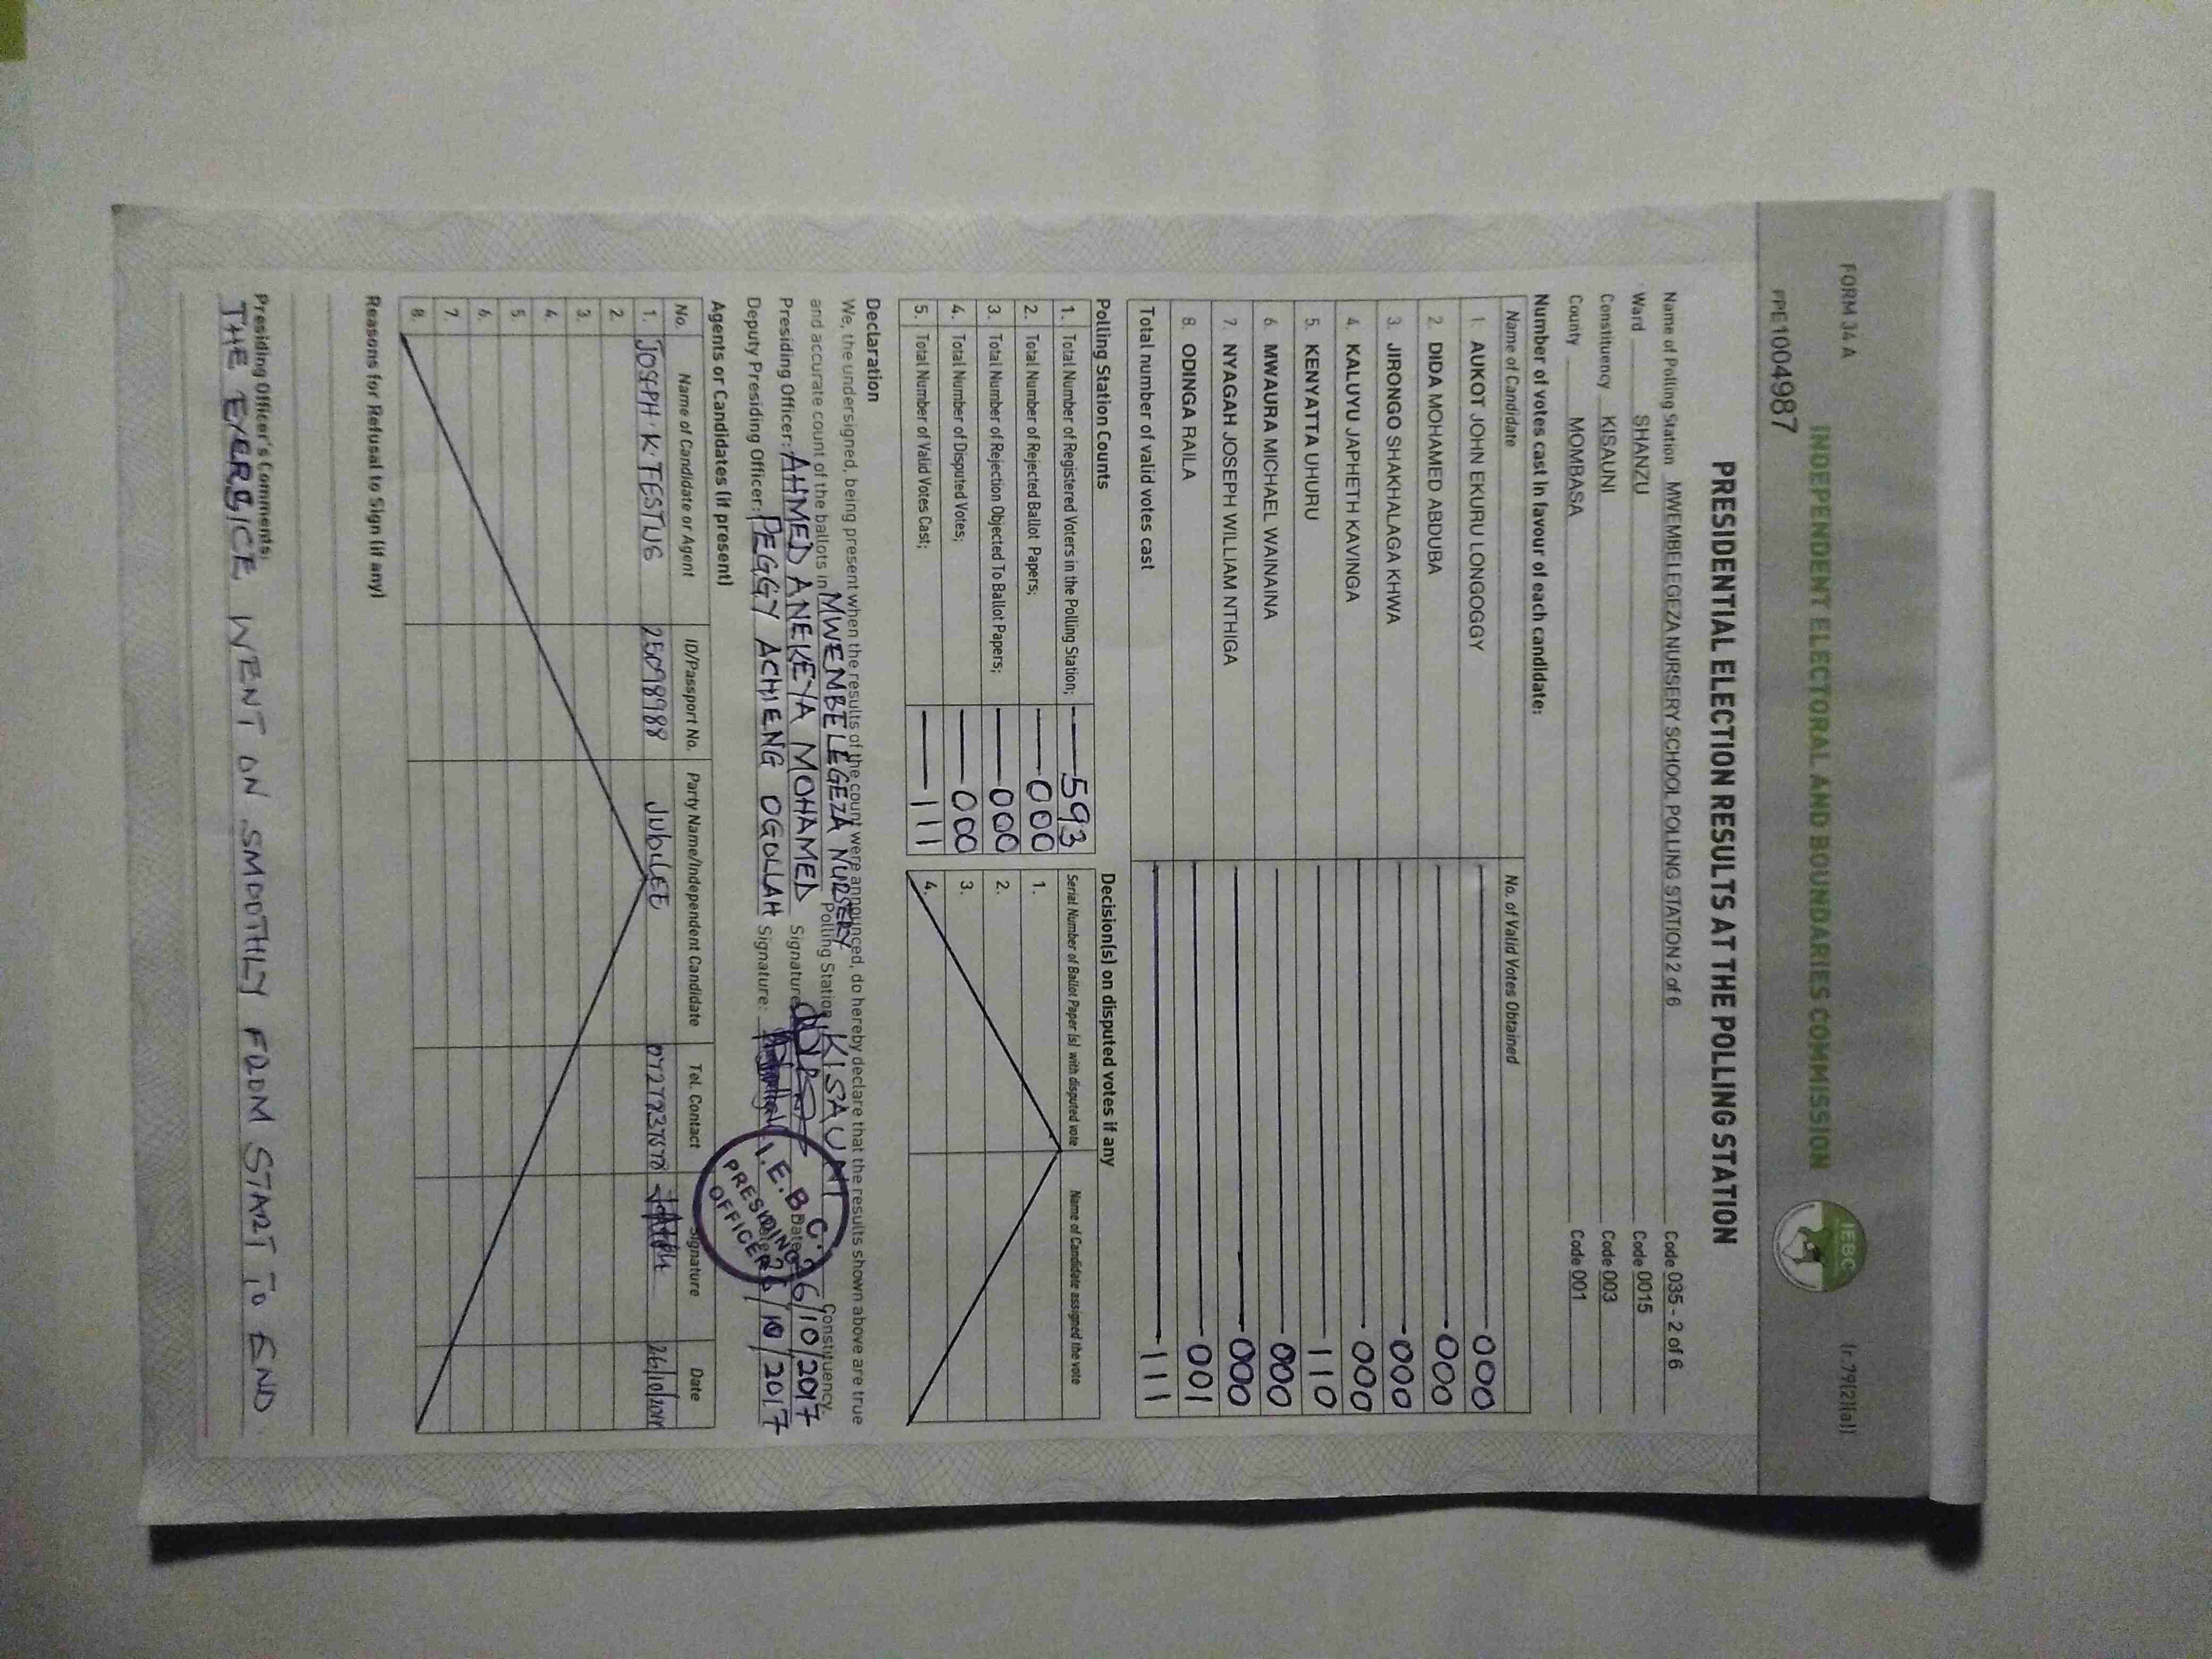 FORM 34 A
(r.79(2)(a))
INDEPENDENT ELECTORAL AND BOUNDARIES COMMISSION
IEBC
PPE1004987
PRESIDENTIAL ELECTION RESULTS AT THE POLLING STATION
Name of Polling Station MWEMBELEGEZA NURSERY SCHOOL POLLING STATION 2 of 6 Code 035 - 2 of 6
Ward SHANZU Code 0015
Constituency KISAUNI Code 003
County MOMBASA Code 001
Number of votes cast in favour of each candidate:
Name of Candidate No. of Valid Votes Obtained
1. AUKOT JOHN EKURU LONGOGGY 000
2. DIDA MOHAMED ABDUBA 000
3. JIRONGO SHAKHALAGA KHWA 000
4. KALUYU JAPHETH KAVINGA 000
5. KENYATTA UHURU 110
6. MWAURA MICHAEL WAINAINA 000
7. NYAGAH JOSEPH WILLIAM NTHIGA 000
8. ODINGA RAILA 001
Total number of valid votes cast 111
Polling Station Counts
1. Total Number of Registered Voters in the Polling Station; 593
2. Total Number of Rejected Ballot Papers; 000
3. Total Number of Rejection Objected To Ballot Papers; 000
4. Total Number of Disputed Votes; 000
5. Total Number of Valid Votes Cast; 111
Decision(s) on disputed votes if any
Serial Number of Ballot Paper (s) with disputed vote Name of Candidate assigned the vote
1.
2.
3.
4.
Declaration
We, the undersigned, being present when the results of the count were announced, do hereby declare that the results shown above are true
and accurate count of the ballots in MWEMBELEGEZA NURSERY Polling Station, KISAUNI Constituency.
Presiding Officer: AHMED ANEKEYA MOHAMED Signature: Date: 26/10/2017
Deputy Presiding Officer: PEGGY ACHIENG OGOLLAH Signature: Date: 26/10/2017
I.E.B.C.
PRESIDING
OFFICER
Agents or Candidates (if present)
No. Name of Candidate or Agent ID/Passport No. Party Name/Independent Candidate Tel. Contact Signature Date
1. JOSEPH K. FESTUS 25098988 JUBILEE
2.
3.
4.
5.
6.
7.
8.
Reasons for Refusal to Sign (if any)
Presiding Officer's Comments:
THE EXERSICE WENT ON SMOOTHLY FROM START TO END.